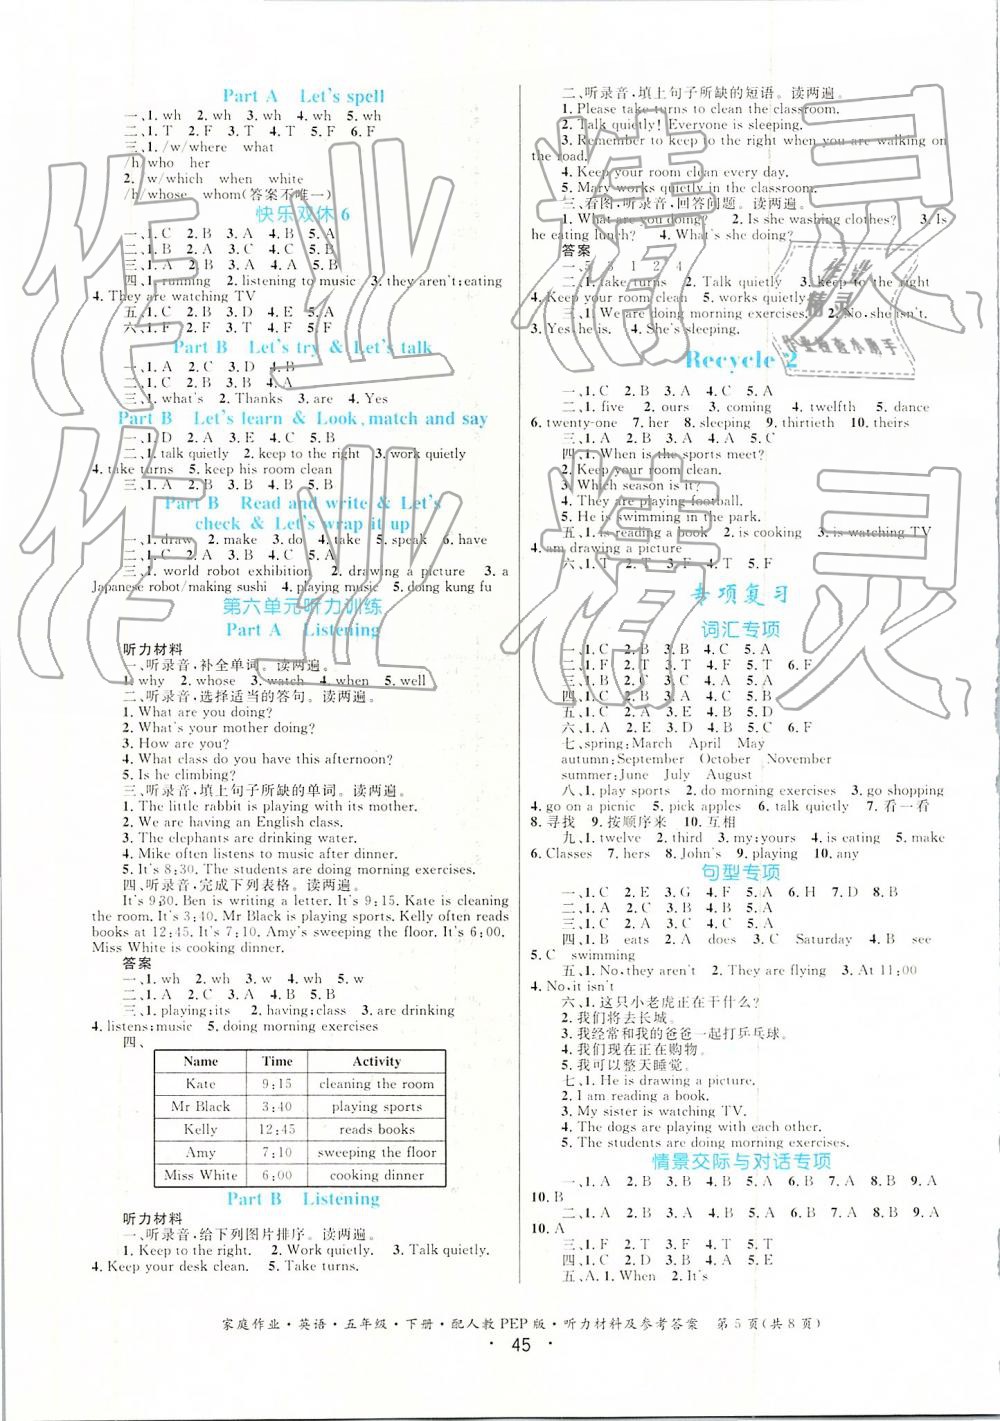 Part A Let's spell
一、1. wh 2. wh 3. wh 4. wh 5. wh
二、1. T 2. F 3. T 4. T 5. F
三、1. /w/where what
/h/who her
2. w/which when white
/h/whose whom(答案不唯一)
快乐双休 6
一、1. C 2. B 3. A 4. B 5. A
二、1. B 2. A 3. C 4. A 5. C
三、1. A 2. C 3. B 4. A 5. B
四、1. running 2. listening to music 3. they aren't;eating
4. They are watching TV
五、1. C 2. B 3. D 4. E 5. A
六、1. F 2. T 3. T 4. F 5. F
Part B Let's try & Let's talk
一、1. A 2. C 3. D 4. B
二、1. C 2. B 3. B 4. A
三、1. what's 2. Thanks 3. are 4. Yes
Part B Let's learn & Look, match and say
一、1. D 2. A 3. E 4. C 5. B
二、1. talk quietly 2. keep to the right 3. work quietly
4. take turns 5. keep his room clean
三、1. C 2. A 3. B 4. C 5. B
Part B Read and write & Let's
check & Let's wrap it up
一、1. draw 2. make 3. do 4. take 5. speak 6. have
二、1. C 2. A 3. B 4. C 5. A
三、1. world robot exhibition 2. drawing a picture 3. a
Japanese robot/making sushi 4. playing music 5. doing kung fu
第六单元听力训练
Part A Listening
听力材料
一、听录音,补全单词。读两遍。
1. why 2. whose 3. watch 4. when 5. well
二、听录音,选择适当的答句。读两遍。
1. What are you doing?
2. What's your mother doing?
3. How are you?
4. What class do you have this afternoon?
5. Is he climbing?
三、听录音,填上句子所缺的单词。读两遍。
1. The little rabbit is playing with its mother.
2. We are having an English class.
3. The elephants are drinking water.
4. Mike often listens to music after dinner.
5. It's 8:30. The students are doing morning exercises.
四、听录音,完成下列表格。读两遍。
It's 9:30. Ben is writing a letter. It's 9:15. Kate is cleaning
the room. It's 3:40. Mr Black is playing sports. Kelly often reads
books at 12:45. It's 7:10. Amy's sweeping the floor. It's 6:00.
Miss White is cooking dinner.
答案
一、1. wh 2. wh 3. w 4. wh 5. w
二、1. A 2. C 3. B 4. A 5. A
三、1. playing;its 2. having;class 3. are drinking
4. listens;music 5. doing morning exercises
四、
Name Time Activity
Kate 9:15 cleaning the room
Mr Black 3:40 playing sports
Kelly 12:45 reads books
Amy 7:10 sweeping the floor
Miss White 6:00 cooking dinner
Part B Listening
听力材料
一、听录音,给下列图片排序。读两遍。
1. Keep to the right. 2. Work quietly. 3. Talk quietly.
4. Keep your desk clean. 5. Take turns.
二、听录音,填上句子所缺的短语。读两遍。
1. Please take turns to clean the classroom.
2. Talk quietly! Everyone is sleeping.
3. Remember to keep to the right when you are walking on
the road.
4. Keep your room clean every day.
5. Mary works quietly in the classroom.
三、看图,听录音,回答问题。读两遍。
1. What are you doing? 2. Is she washing clothes? 3. Is
he eating lunch? 4. What's she doing?
答案
一、5 3 1 2 4
二、1. take turns 2. Talk quietly 3. keep to the right
4. Keep your room clean 5. works quietly
三、1. We are doing morning exercises. 2. No, she isn't.
3. Yes, he is. 4. She's sleeping.
Recycle 2
一、1. C 2. B 3. A 4. C 5. A
二、1. five 2. ours 3. coming 4. twelfth 5. dance
6. twenty-one 7. her 8. sleeping 9. thirtieth 10. theirs
三、1. A 2. B 3. B 4. B 5. A
四、1. When is the sports meet?
2. Keep your room clean.
3. Which season is it?
4. They are playing football.
5. He is swimming in the park.
五、1. is reading a book 2. is cooking 3. is watching TV
4. am drawing a picture
六、1. F 2. T 3. T 4. T 5. F
专项复习
词汇专项
一、1. C 2. B 3. B 4. C 5. A
二、1. F 2. T 3. T 4. F 5. T 6. F
三、1. B 2. C 3. C 4. A 5. A
四、1. C 2. B 3. A 4. B 5. C
五、1. C 2. A 3. E 4. B 5. D
六、1. C 2. B 3. D 4. A 5. E 6. F
七、spring:March April May
autumn:September October November
summer:June July August
八、1. play sports 2. do morning exercises 3. go shopping
4. go on a picnic 5. pick apples 6. talk quietly 7. 看一看
8. 寻找 9. 按顺序来 10. 互相
九、1. twelve 2. third 3. my;yours 4. is eating 5. make
6. Classes 7. hers 8. John's 9. playing 10. any
句型专项
一、1. C 2. E 3. G 4. F 5. A 6. H 7. D 8. B
二、1. A 2. C 3. B 4. B 5. A
三、1. C 2. A 3. C 4. A 5. A
四、1. B eats 2. A does 3. C Saturday 4. B see
5. C swimming
五、1. No, they aren't 2. They are flying 3. At 11:00
4. No, it isn't
六、1. 这只小老虎正在干什么?
2. 我们将去长城。
3. 我经常和我的爸爸一起打乒乓球。
4. 我们现在正在购物。
5. 我可以整天睡觉。
七、1. He is drawing a picture.
2. I am reading a book.
3. My sister is watching TV.
4. The dogs are playing with each other.
5. The students are doing morning exercises.
情景交际与对话专项
一、1. C 2. A 3. B 4. C 5. A 6. B 7. A 8. B 9. A
10. B
二、1. A 2. A 3. B 4. B 5. B 6. A 7. A 8. B 9. A
10. A
三、1. F 2. T 3. F 4. T 5. T
四、1. C 2. D 3. B 4. A 5. E
五、A. 1. When 2. It's
家庭作业·英语·五年级·下册·配人教PEP版·听力材料及参考答案 第5页(共8页)
· 45 ·
作业精灵
作业精灵
作业
精灵
作业检查小助手